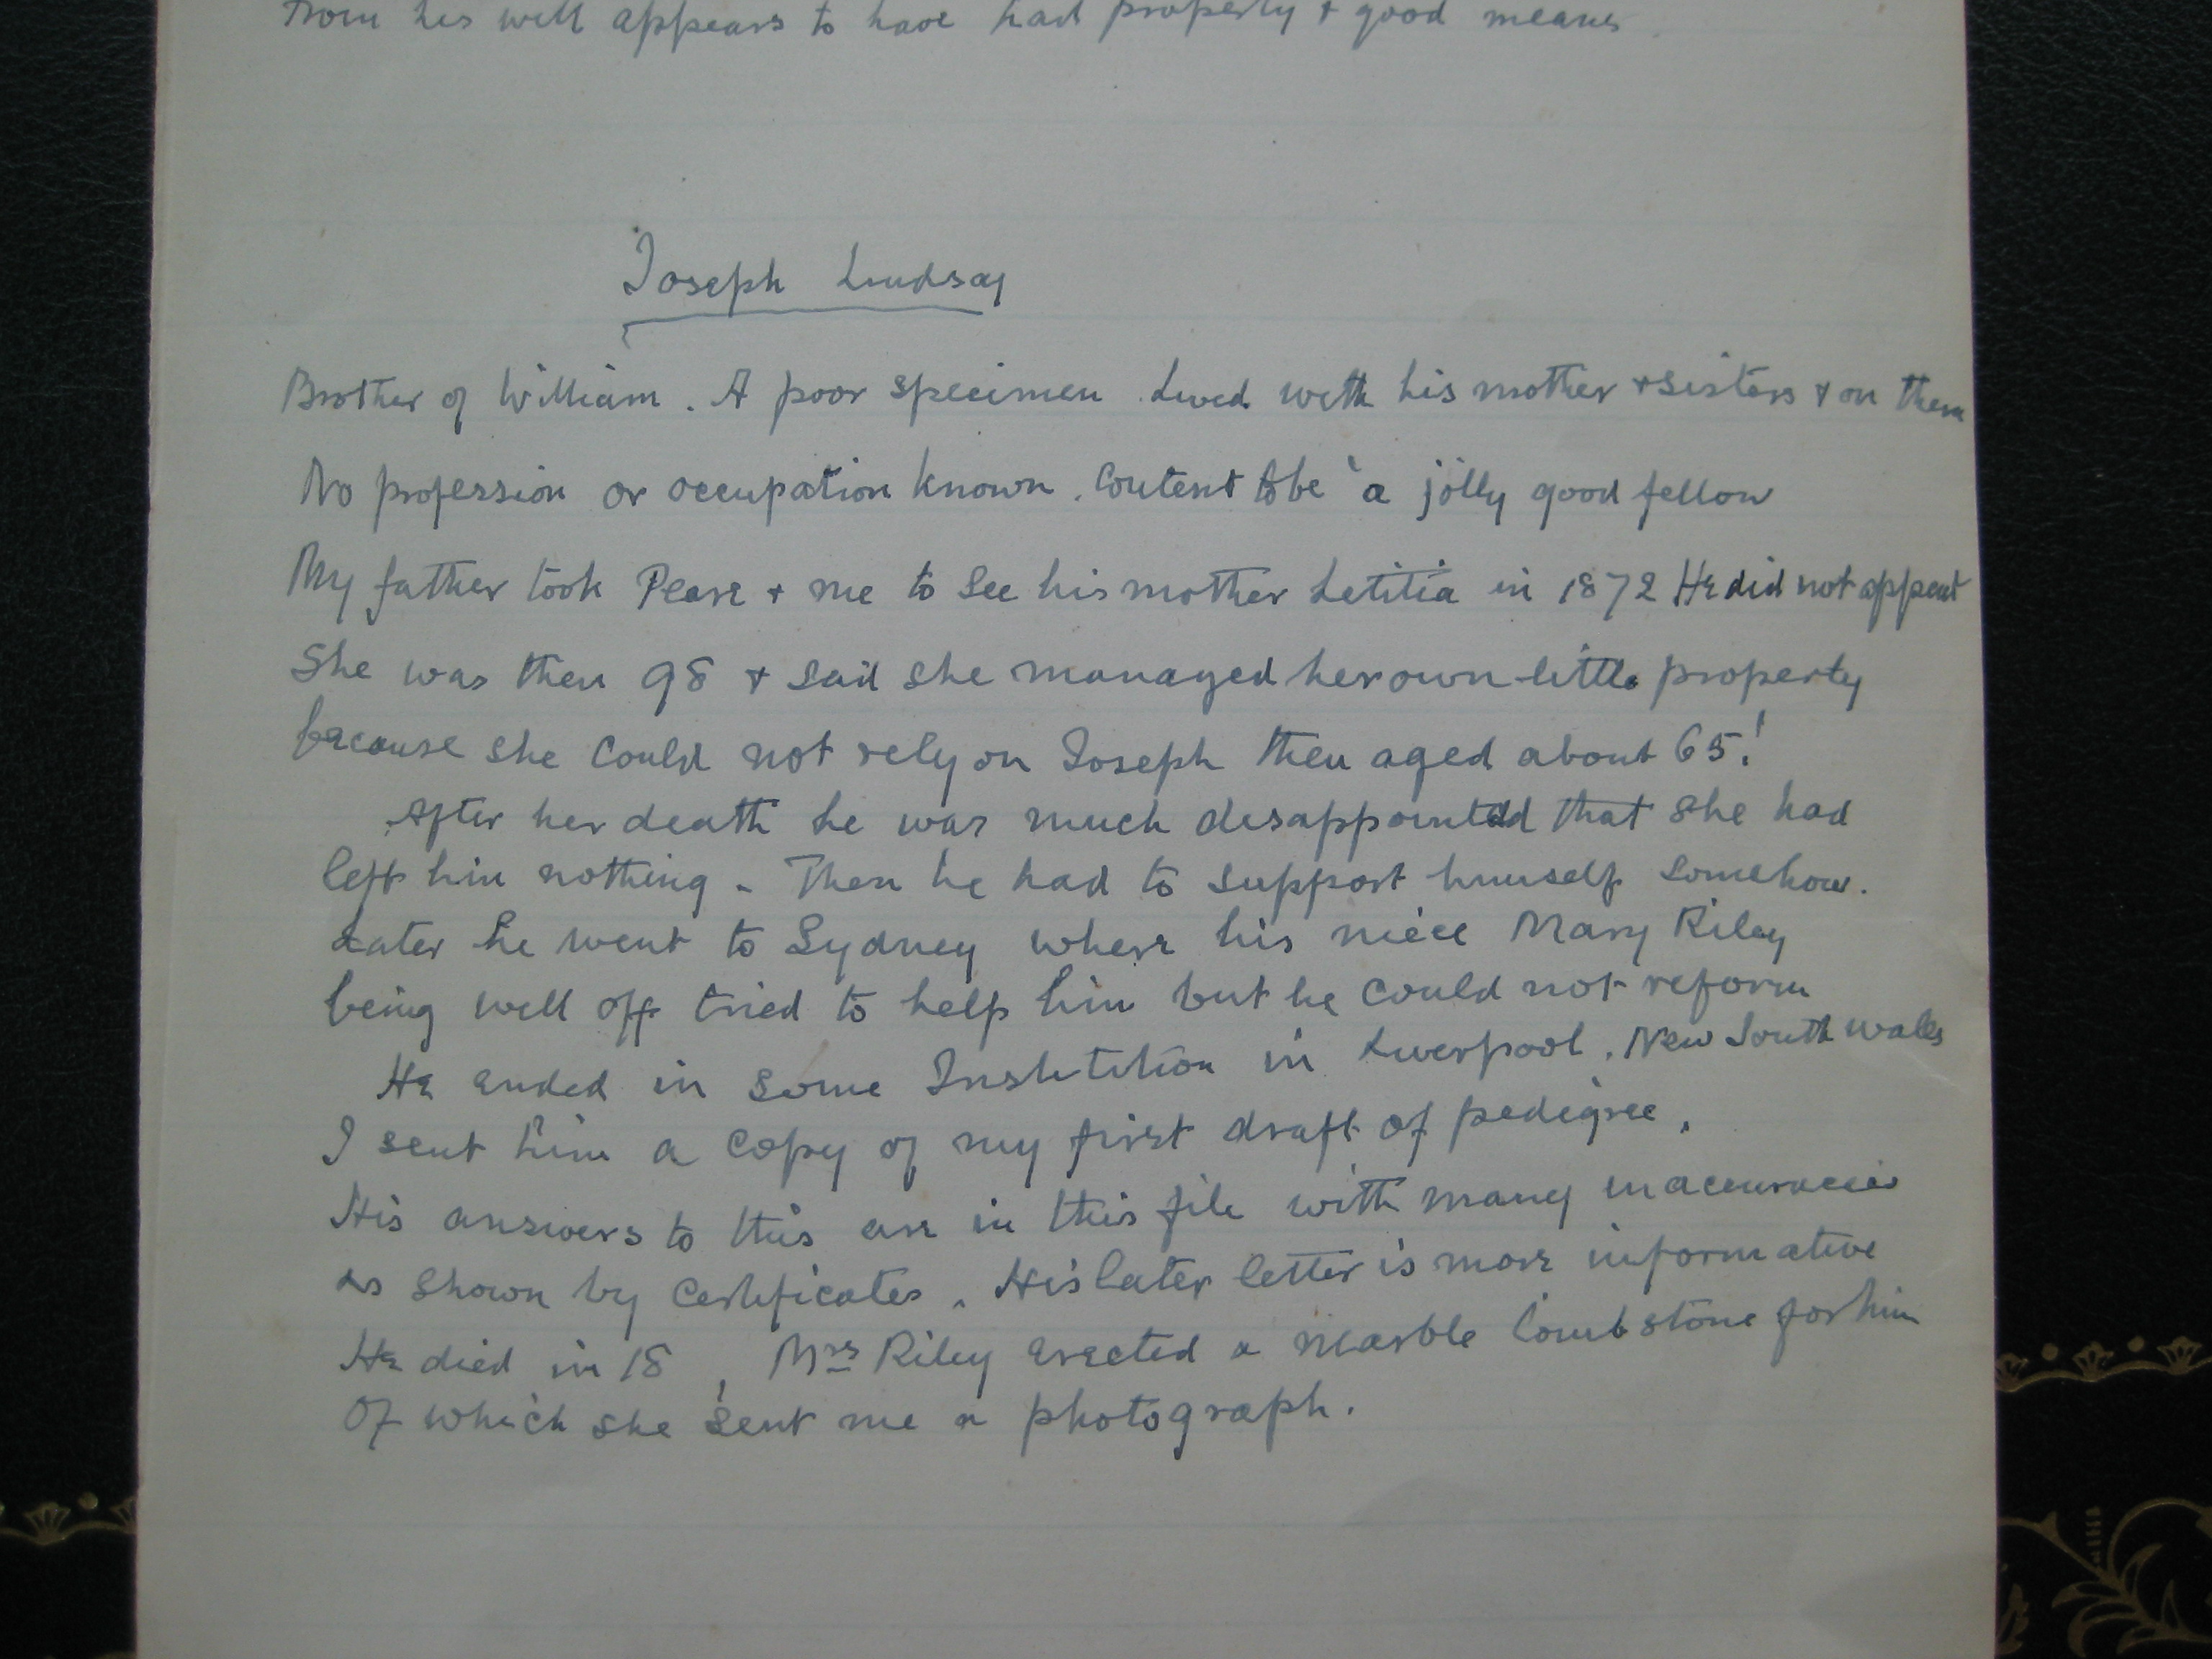 From his will appears to have had property + good means.
Joseph Lindsay
Brother of William. A poor specimen. Lived with his mother + sisters + on them
No profession or occupation known. Content to be 'a jolly good fellow
My father took Peare + me to see his mother Letitia in 1872 He did not appear
She was then 98 + said she managed her own little property
because she could not rely on Joseph then aged about 65!
After her death he was much disappointed that she had
left him nothing - Then he had to support himself somehow.
Later he went to Sydney where his niece Mary Riley
being well off tried to help him but he could not reform
He ended in some Institution in Liverpool, New South Wales
I sent him a copy of my first draft of pedigree.
His answers to this are in this file with many inaccuracies
as shown by certificates. His later letter is more informative
He died in 18 , Mrs Riley erected a marble tombstone for him
Of which she sent me a photograph.